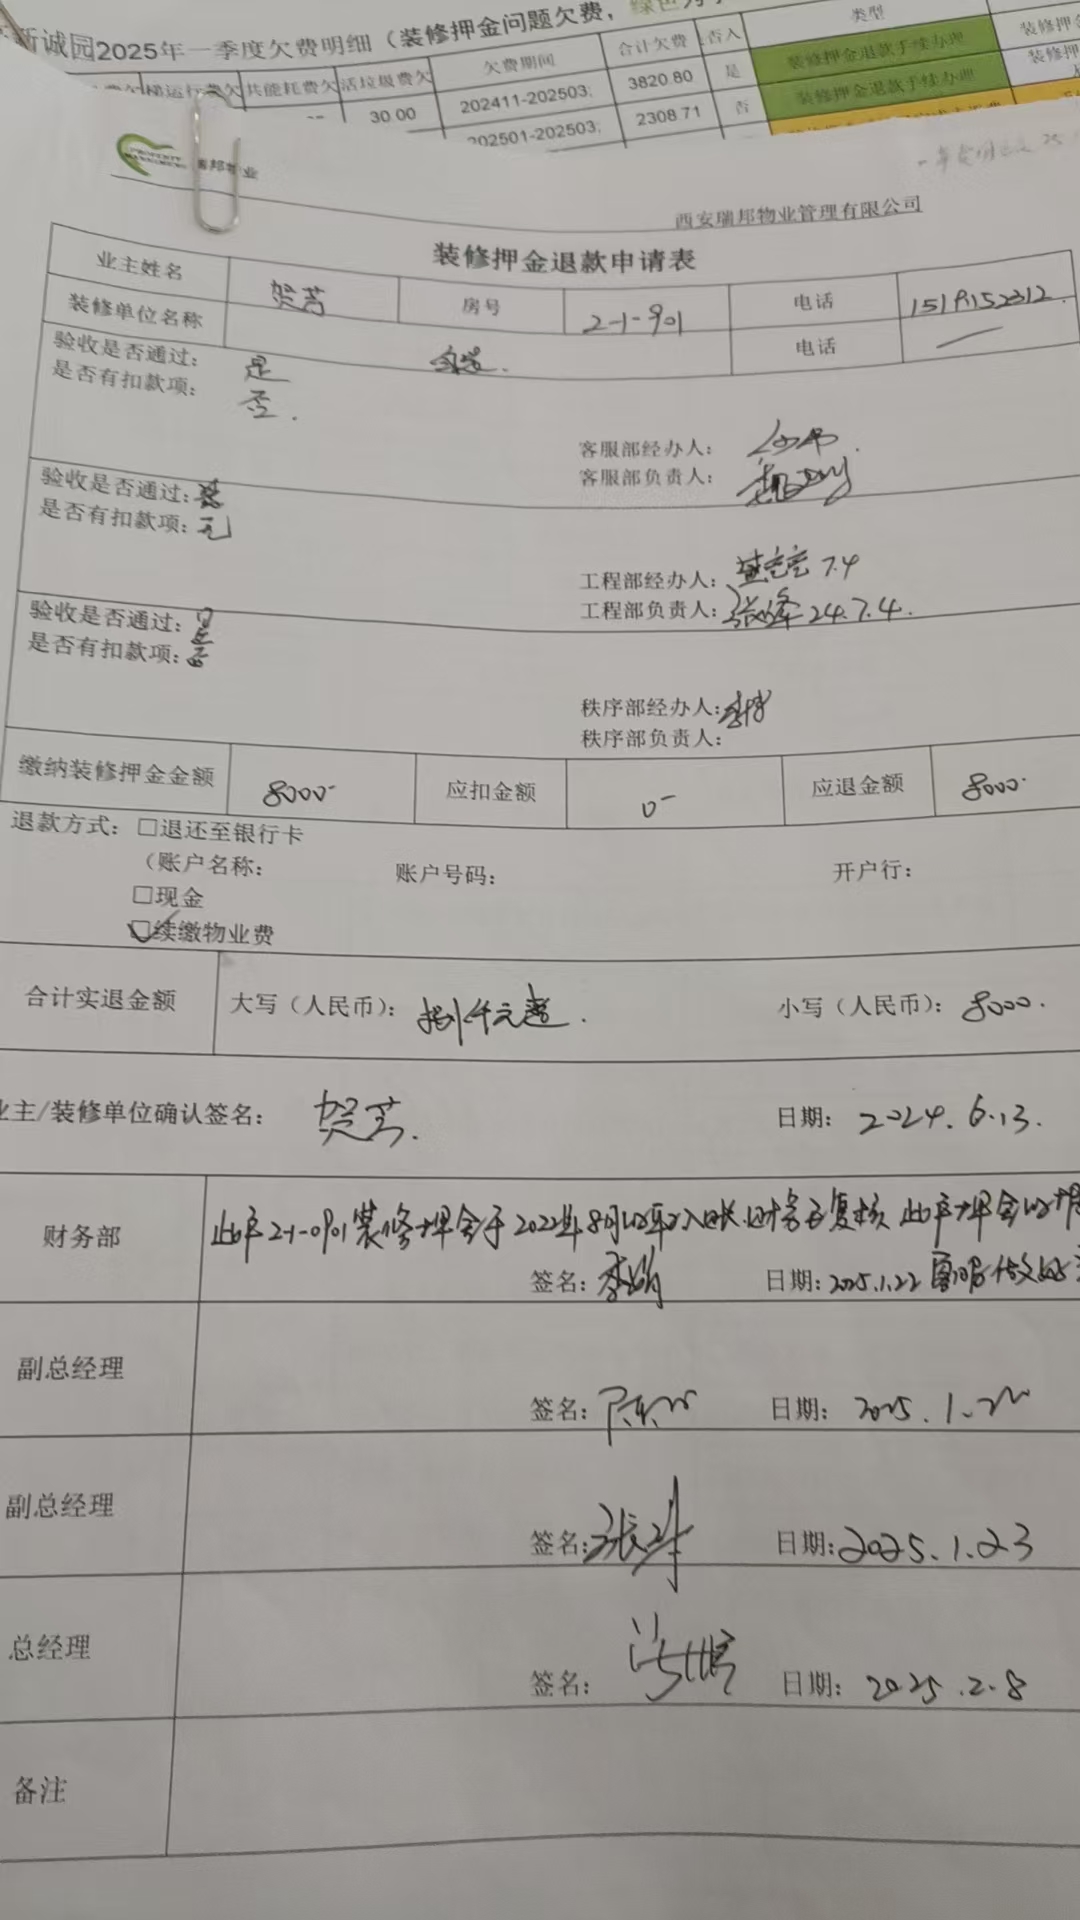 新诚园2025年一季度欠费明细（装修押金问题欠费，绿色为
梯运行费欠 共能耗费欠 活垃圾费欠 欠费期间 合计欠费 否入 类型
30.00 202411-202503; 3820.80 是 装修押金退款手续办理 装修押金
202501-202503; 2308.71 否 装修押金退款手续办理 装修押
PROPERTY MANAGEMENT 瑞邦物业
西安瑞邦物业管理有限公司
装修押金退款申请表
业主姓名 贺芳 房号 2-1-901 电话 1519152312.
装修单位名称 电话 —
验收是否通过： 是
是否有扣款项： 否.
客服部经办人：
客服部负责人：
验收是否通过：
是否有扣款项：无
工程部经办人： 7.4
工程部负责人：张峰 24.7.4.
验收是否通过：是
是否有扣款项：否
秩序部经办人：
秩序部负责人：
缴纳装修押金金额 8000 应扣金额 0 应退金额 8000
退款方式：□退还至银行卡
（账户名称： 账户号码： 开户行：
□现金
☑续缴物业费
合计实退金额 大写（人民币）：捌仟元整. 小写（人民币）：8000.
业主/装修单位确认签名： 贺芳. 日期：2024.6.13.
财务部 此户2-1-0901装修押金于2022年8月 入账，财务已复核 此户押金
签名：李娟 日期：2025.1.22
副总经理
签名： 日期：2025.1.22
副总经理
签名：张 日期：2025.1.23
总经理
签名： 日期：2025.2.8
备注